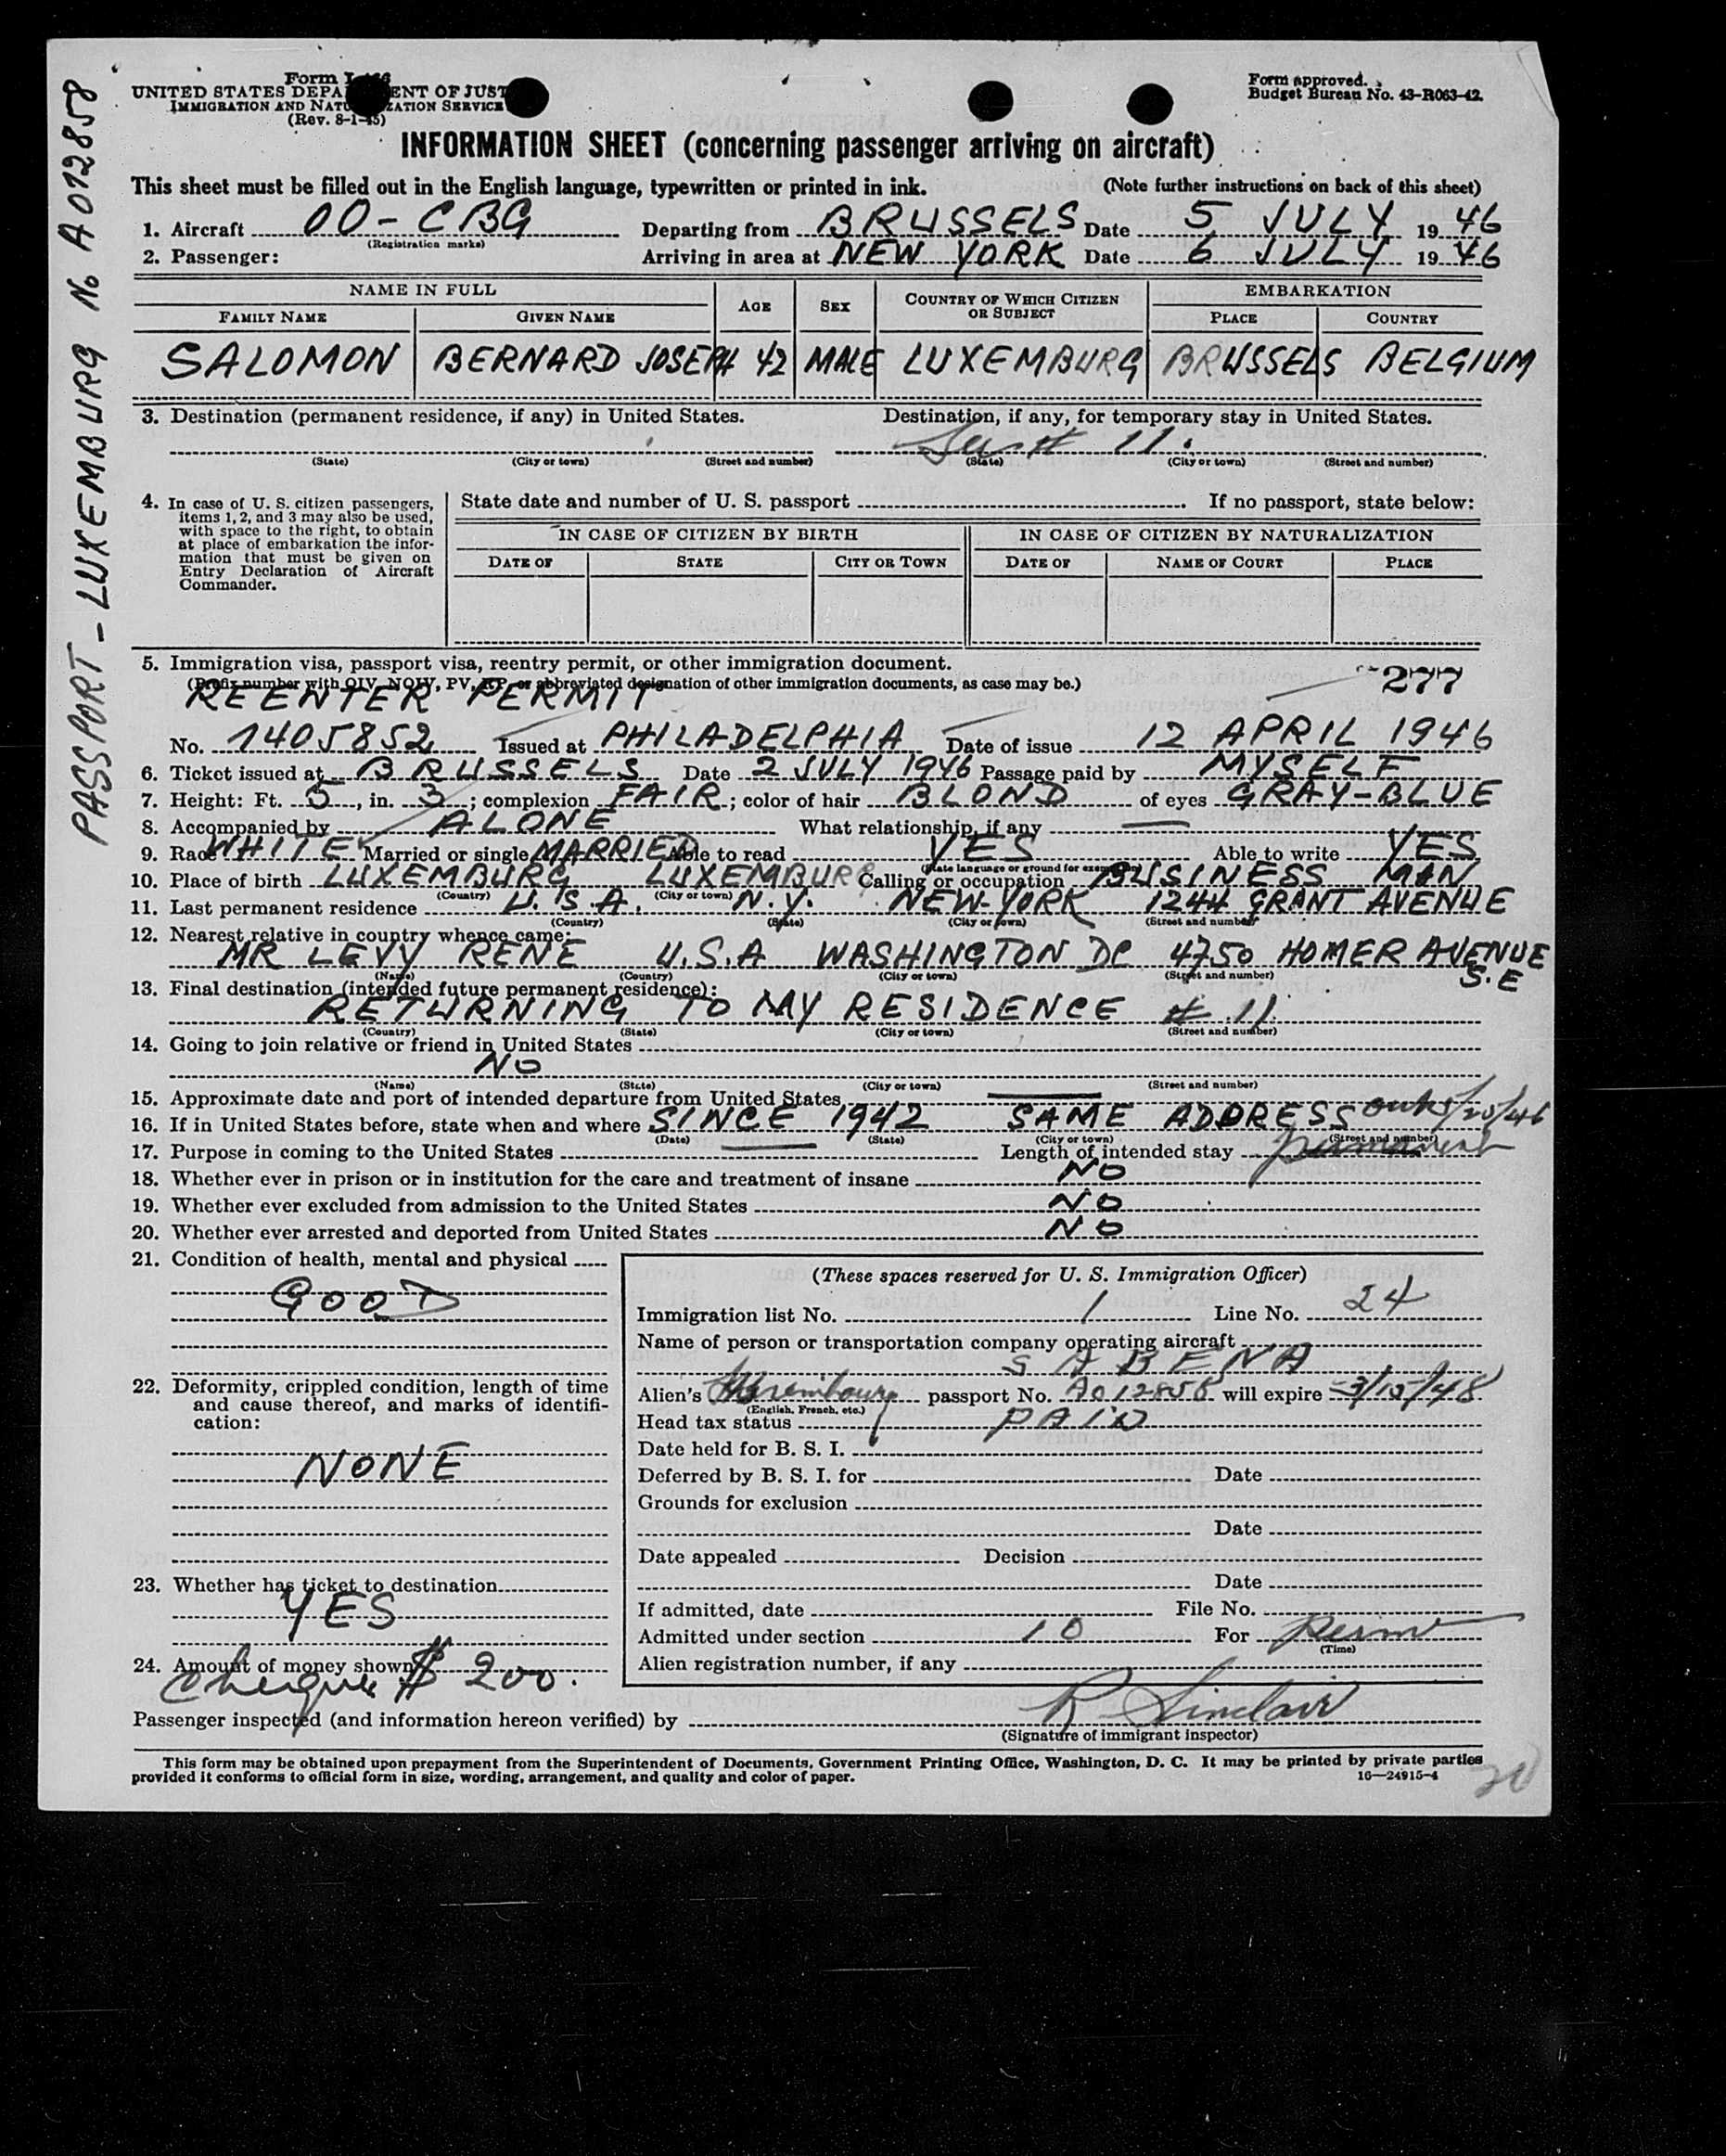 PASSPORT - LUXEMBURG No A 012858
Form I-466
UNITED STATES DEPA ENT OF JUST
IMMIGRATION AND NATU ZATION SERVICE
(Rev. 8-1-45)
Form approved.
Budget Bureau No. 43-R063-42.
INFORMATION SHEET (concerning passenger arriving on aircraft)
This sheet must be filled out in the English language, typewritten or printed in ink. (Note further instructions on back of this sheet)
1. Aircraft OO-CBG Departing from BRUSSELS Date 5 JULY 1946
(Registration marks)
2. Passenger: Arriving in area at NEW YORK Date 6 JULY 1946
NAME IN FULL AGE SEX COUNTRY OF WHICH CITIZEN OR SUBJECT EMBARKATION
FAMILY NAME GIVEN NAME PLACE COUNTRY
SALOMON BERNARD JOSEPH 42 MALE LUXEMBURG BRUSSELS BELGIUM
3. Destination (permanent residence, if any) in United States. Destination, if any, for temporary stay in United States.
# 11.
(State) (City or town) (Street and number) (State) (City or town) (Street and number)
4. In case of U. S. citizen passengers, items 1, 2, and 3 may also be used, with space to the right, to obtain at place of embarkation the information that must be given on Entry Declaration of Aircraft Commander.
State date and number of U. S. passport If no passport, state below:
IN CASE OF CITIZEN BY BIRTH IN CASE OF CITIZEN BY NATURALIZATION
DATE OF STATE CITY OR TOWN DATE OF NAME OF COURT PLACE
5. Immigration visa, passport visa, reentry permit, or other immigration document.
(Prefix number with QIV, NQIV, PV, RP, or abbreviated designation of other immigration documents, as case may be.) 277
REENTER PERMIT
No. 1405852 Issued at PHILADELPHIA Date of issue 12 APRIL 1946
6. Ticket issued at BRUSSELS Date 2 JULY 1946 Passage paid by MYSELF
7. Height: Ft. 5, in. 3; complexion FAIR; color of hair BLOND of eyes GRAY-BLUE
8. Accompanied by ALONE What relationship, if any —
9. Race WHITE Married or single MARRIED Able to read YES Able to write YES
(State language or ground for exemption)
10. Place of birth LUXEMBURG LUXEMBURG Calling or occupation BUSINESS MAN
(Country) (City or town)
11. Last permanent residence U.S.A. N.Y. NEW-YORK 1244 GRANT AVENUE
(Country) (State) (City or town) (Street and number)
12. Nearest relative in country whence came:
MR LEVY RENE U.S.A WASHINGTON DC 4750 HOMER AVENUE S.E
(Name) (Country) (City or town) (Street and number)
13. Final destination (intended future permanent residence):
RETURNING TO MY RESIDENCE # 11.
(Country) (State) (City or town) (Street and number)
14. Going to join relative or friend in United States
NO
(Name) (State) (City or town) (Street and number)
15. Approximate date and port of intended departure from United States —
16. If in United States before, state when and where SINCE 1942 SAME ADDRESS 5/20/46
(Date) (State) (City or town) (Street and number)
17. Purpose in coming to the United States — Length of intended stay permanent
18. Whether ever in prison or in institution for the care and treatment of insane NO
19. Whether ever excluded from admission to the United States NO
20. Whether ever arrested and deported from United States NO
21. Condition of health, mental and physical
GOOD
22. Deformity, crippled condition, length of time and cause thereof, and marks of identification:
NONE
23. Whether has ticket to destination
YES
24. Amount of money shown
cheque $ 200.
(These spaces reserved for U. S. Immigration Officer)
Immigration list No. 1 Line No. 24
Name of person or transportation company operating aircraft
SABENA
Alien's Luxembourg passport No. A012858 will expire 3/15/48
(English, French, etc.)
Head tax status PAID
Date held for B. S. I.
Deferred by B. S. I. for Date
Grounds for exclusion
Date
Date appealed Decision
Date
If admitted, date File No.
Admitted under section 10 For Perm
(Time)
Alien registration number, if any
Passenger inspected (and information hereon verified) by R Sinclair
(Signature of immigrant inspector)
This form may be obtained upon prepayment from the Superintendent of Documents, Government Printing Office, Washington, D. C. It may be printed by private parties
provided it conforms to official form in size, wording, arrangement, and quality and color of paper. 16—24915-4